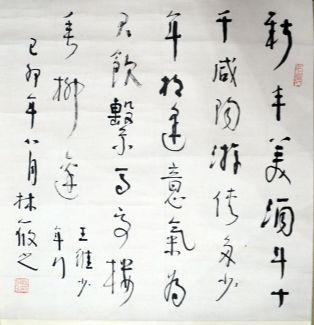 新丰美酒斗十
千咸陽游俠多少
年相逢意氣為
君飲繫馬高樓
垂柳邊
王維少
年行
己卯年八月林筱之